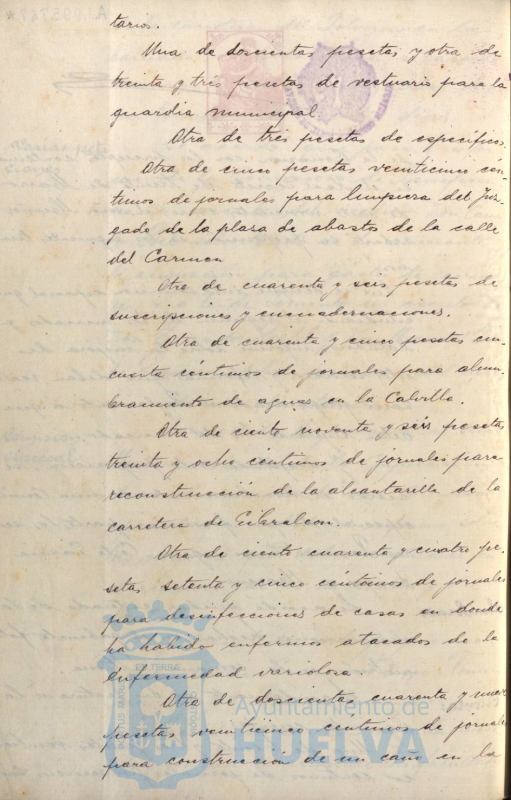 tarios.
Una de doscientas pesetas y otra de
treinta y tres pesetas de vestuario para la
guardia municipal.
Otra de tres pesetas de específicos.
Otra de cinco pesetas veinticinco cén-
timos de jornales para limpieza del Juz-
gado de la plaza de abastos de la calle
del Carmen
Otra de cuarenta y seis pesetas de
suscripciones y encuadernaciones.
Otra de cuarenta y cinco pesetas cin-
cuenta céntimos de jornales para alum-
bramiento de aguas en la Calvilla.
Otra de ciento noventa y seis pesetas
treinta y ocho céntimos de jornales para
reconstrucción de la alcantarilla de la
carretera de Gibraleon.
Otra de ciento cuarenta y cuatro pe-
setas setenta y cinco céntimos de jornales
para desinfecciones de casas en donde
ha habido enfermos atacados de la
enfermedad variolosa.
Otra de doscientas cuarenta y nueve
pesetas veinticinco céntimos de jornales
para construcción de un caño en la
Ayuntamiento de
HUELVA